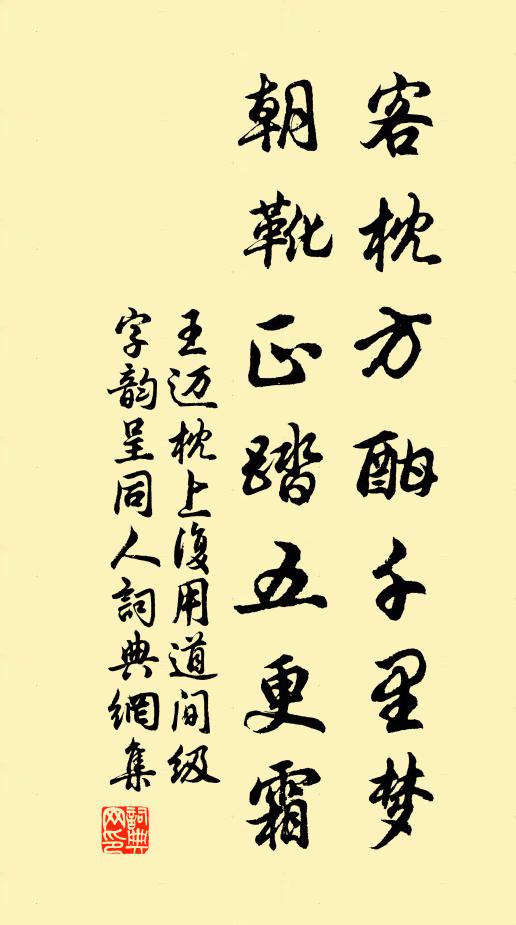 客枕方酣千里梦
朝靴正踏五更霜
王迈枕上復用道间级
字韵呈同人詞典網集
詞典